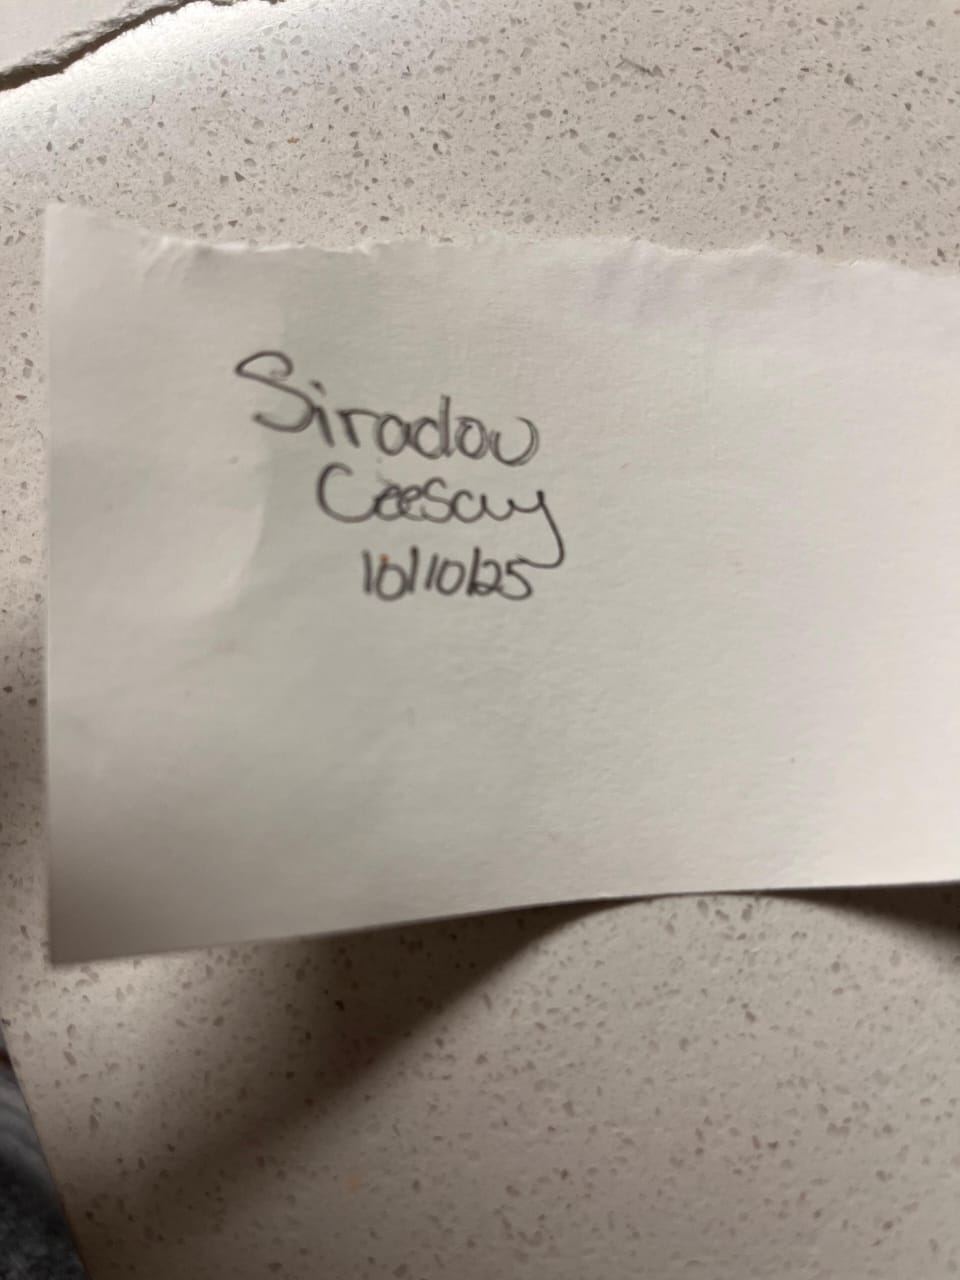 Siradou
Ceesay
10/10/25